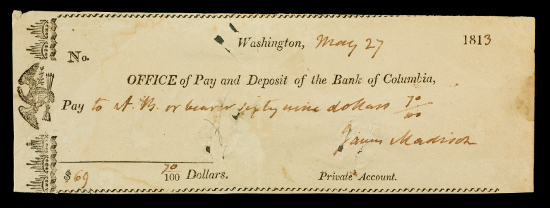 Washington, May 27 1813
No.
OFFICE of Pay and Deposit of the Bank of Columbia,
Pay to A. B. or bearer sixty nine dollars 70/100
James Madison
$ 69 70/100 Dollars. Private Account.